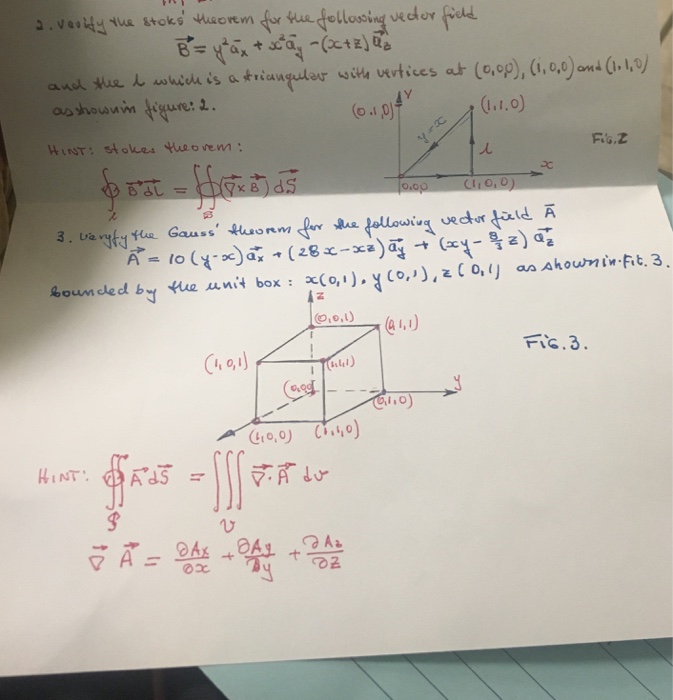 2. verify the stoks' theorem for the following vector field
B⃗ = y² a⃗x + x² a⃗y - (x+z) a⃗z
and the l which is a triangular with vertices at (0,0,0), (1,0,0) and (1,1,0)
as shown in figure: 2.
(0,1,0)
Y
(1,1,0)
FIG. 2
y=x
l
x
0,0,0
(1,0,0)
HINT: stokes theorem:
∮ B⃗ dl⃗ = ∯ (∇⃗ × B⃗) dS⃗
l
S
3. veryfy the Gauss' theorem for the following vector field A⃗
A⃗ = 10(y-x) a⃗x + (28x-xz) a⃗y + (xy - 8/3 z) a⃗z
bounded by the unit box: x(0,1), y(0,1), z(0,1) as shown in Fit. 3.
z
(0,0,1)
(0,1,1)
FIG. 3.
(1,0,1)
(1,1,1)
(0,0,0)
y
(0,1,0)
(1,0,0)
(1,1,0)
HINT: ∯ A⃗ dS⃗ = ∭ ∇⃗ · A⃗ dv
S
v
∇⃗ A⃗ = ∂Ax/∂x + ∂Ay/∂y + ∂Az/∂z